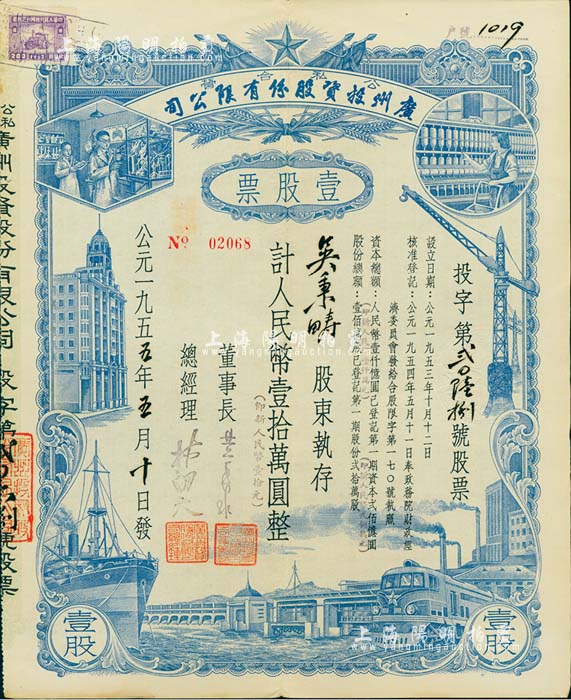 戶號 1019
公私合營
廣州投資股份有限公司
壹股票
No 02068
投字第貳0陸捌號股票
設立日期：公元一九五三年十月十二日
核准登記：公元一九五四年五月十一日奉政務院財政經
濟委員會發給合股限字第一七0號執照
資本總額：人民幣壹仟億圓已登記第一期資本貳佰億圓
股份總額：壹佰萬股已登記第一期股份貳拾萬股
吳秉疇 股東執存
計人民幣壹拾萬圓整
(即新人民幣壹拾元)
董事長
總經理
公元一九五五年五月十日發
壹股
壹股
上海陽明拍賣
www.yangmingauction.com